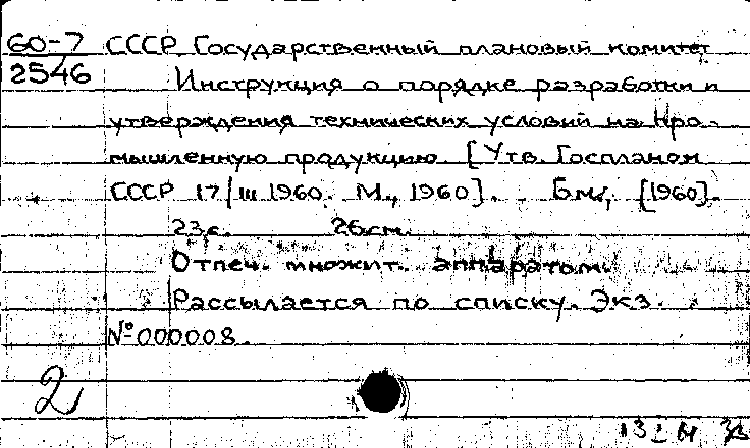 60-7 СССР Государственный плановый комитет
2546 Инструкция о порядке разработки и
утверждения технических условий на про-
мышленную продукцию. [Утв. Госпланом
СССР 17/III 1960. М., 1960]. [1960].
23с. 26см.
Отпеч. множит. аппаратом.
Рассылается по списку. Экз.
№ 000008.
2